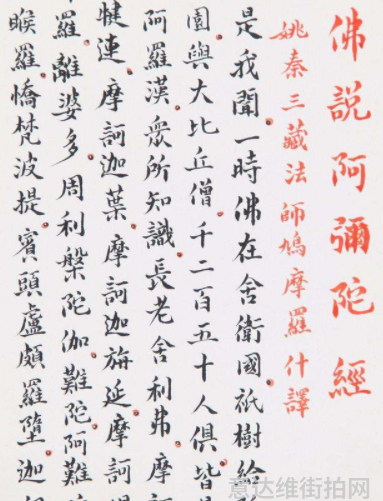 佛說阿彌陀經
姚秦三藏法師鳩摩羅什譯
是我聞一時佛在舍衛國祇樹給
園與大比丘僧千二百五十人俱皆
阿羅漢眾所知識長老舍利弗摩
犍連摩訶迦葉摩訶迦旃延摩訶
羅離婆多周利槃陀伽難陀阿難
睺羅憍梵波提賓頭盧頗羅墮迦
意达维街拍网